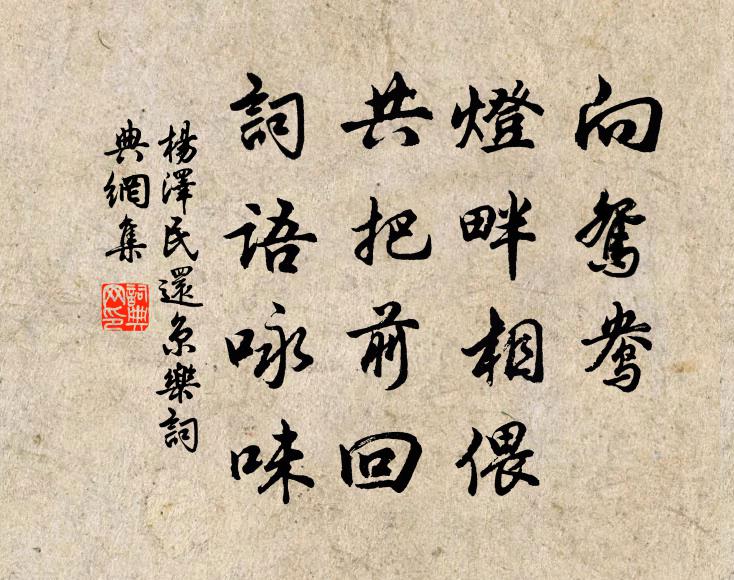 向鴛鴦
燈畔相偎
共把前回
詞語咏味
楊澤民還京樂詞
典網集
詞典
网印